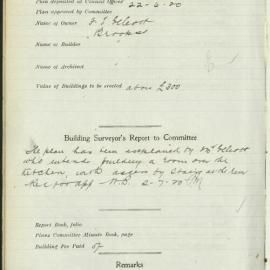 Plan deposited at Council Office 22-6-20
Plan approved by Committee
Name of Owner F. J. Ellcott
Brookes
Name of Builder
Name of Architect
Value of Buildings to be erected above £300
Building Surveyor's Report to Committee
The plan has been explained by Mr Ellcott
who intends building a room over the
kitchen, with access by
2-7-20
Report Book, folio
Plans Committee Minute Book, page
Building Fee Paid
Remarks